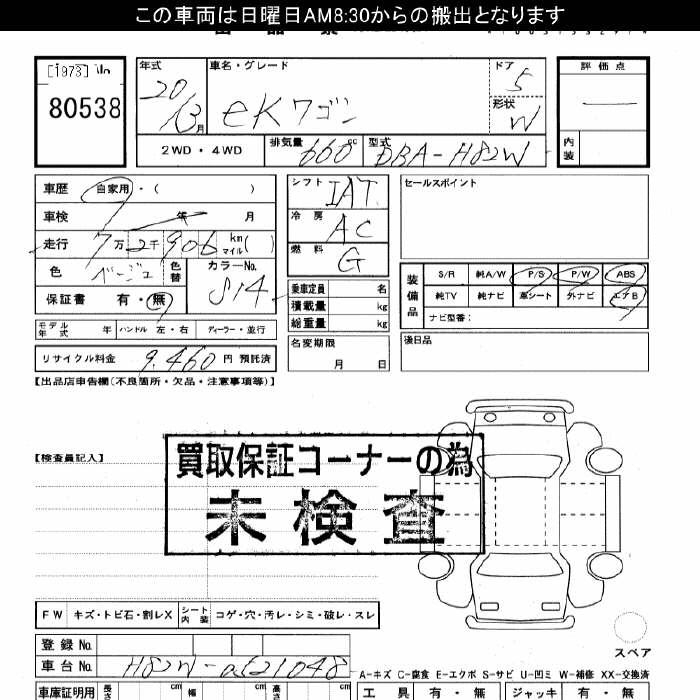 この車両は日曜日AM8:30からの搬出となります
[1973] No
80538
年式 車名・グレード ドア 評価点
20/3月 eKワゴン 5
形状 W
2WD・4WD 排気量 660cc 型式 DBA-H82W 内装
車歴 自家用・( )
車検 年 月
走行 7万2千906 km マイル( )
色 ベージュ 色替 カラーNo. S14
保証書 有・無
モデル年式 年 ハンドル 左・右 ディーラー・並行
リサイクル料金 9,460 円 預託済
シフト IAT
冷房 AC
燃料 G
乗車定員 名
積載量 kg
総重量 kg
名変期限
月 日
セールスポイント
装備品 S/R 純A/W P/S P/W ABS
純TV 純ナビ 革シート 外ナビ エアB
ナビ型番:
後日品
【出品店申告欄(不良箇所・欠品・注意事項等)】
【検査員記入】
買取保証コーナーの為
未検査
FW キズ・トビ石・割レX シート内装 コゲ・穴・汚レ・シミ・破レ・スレ
スペア
登録No.
車台No. H82W-
A-キズ C-腐食 E-エクボ S-サビ U-凹ミ W-補修 XX-交換済
車庫証明用 長さ cm 幅 cm 高さ cm
工具 有・無 ジャッキ 有・無